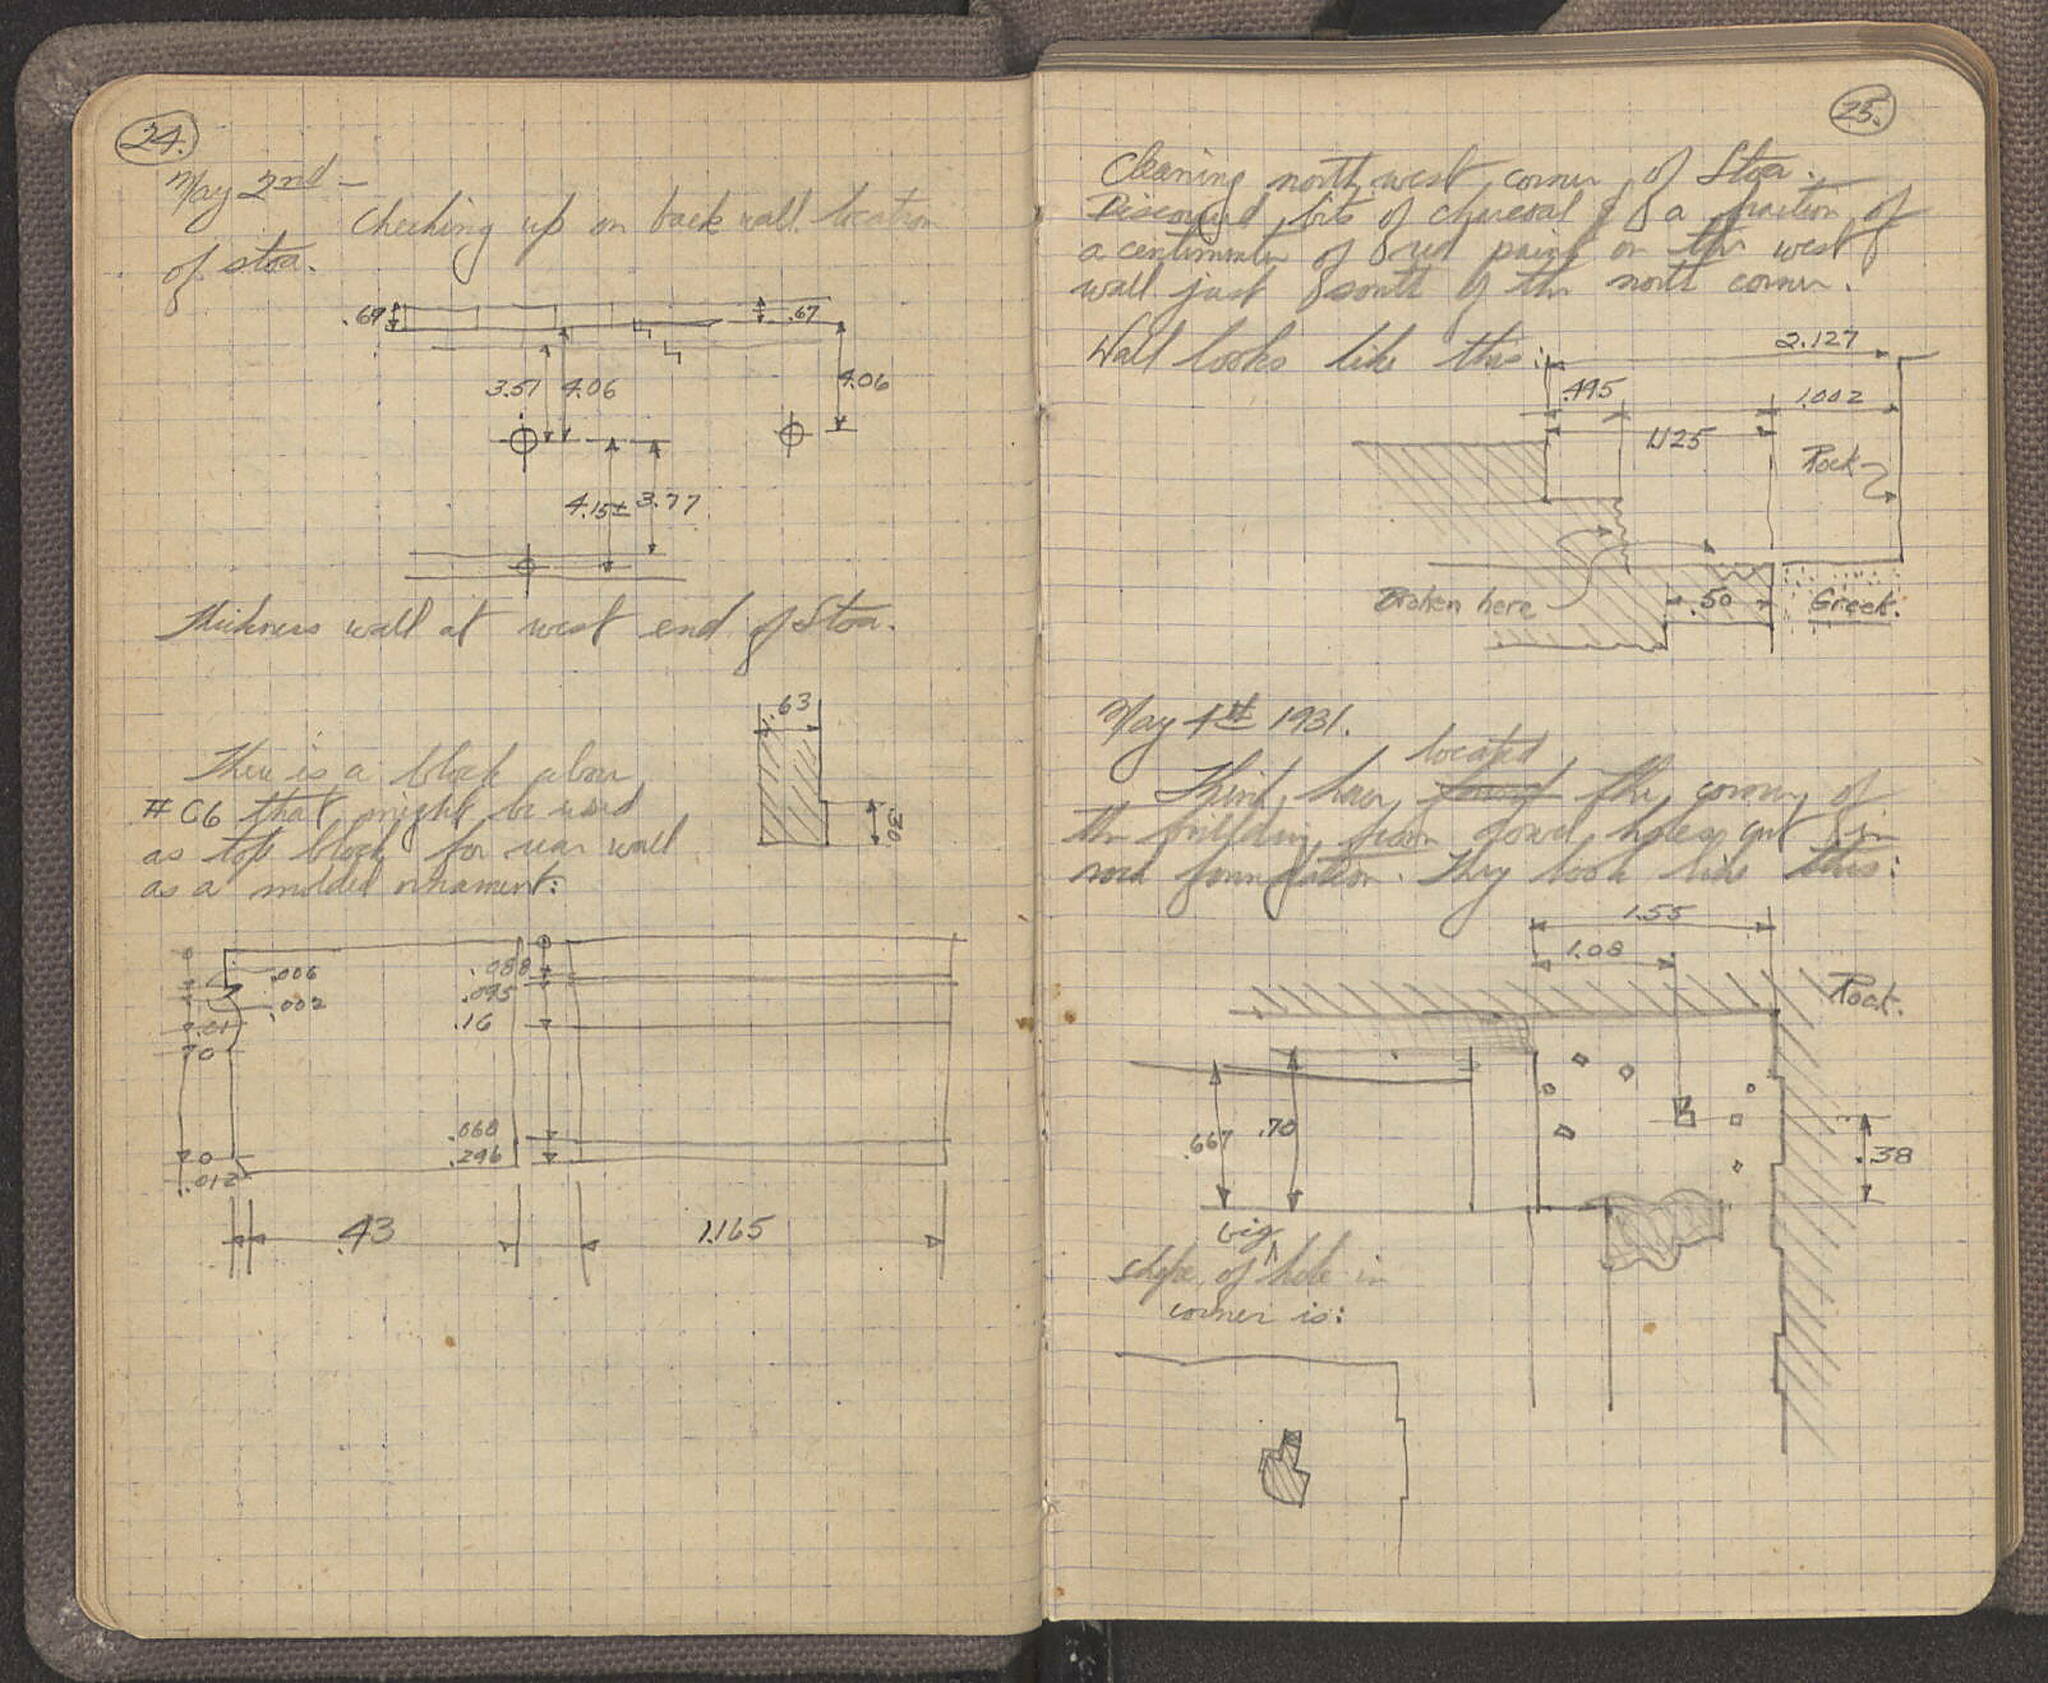 24.
May 2nd —
Checking up on back wall location
of stoa.
.69
.67
3.51
4.06
4.06
4.15±
3.77
Thickness wall at west end of Stoa.
.63
.30
There is a block above
#C6 that might be used
as top block for rear wall
as a molded ornament:
.006
.002
.01
0
0
.012
.088
.095
.16
.068
.296
.43
1.165
25.
Cleaning north west corner of Stoa.
Discovered bits of charcoal & a fraction of
a centimeter of red paint on the west
wall just south of the north corner.
Wall looks like this:
2.127
.495
1.002
1.125
Rock
Broken here
.50
Greek.
May 4th 1931.
located
Think have found the corner of
the building from dowel holes cut in
rock foundation. They look like this:
1.55
1.08
Rock.
.667
.70
.38
big
shape of ^ hole in
corner is: